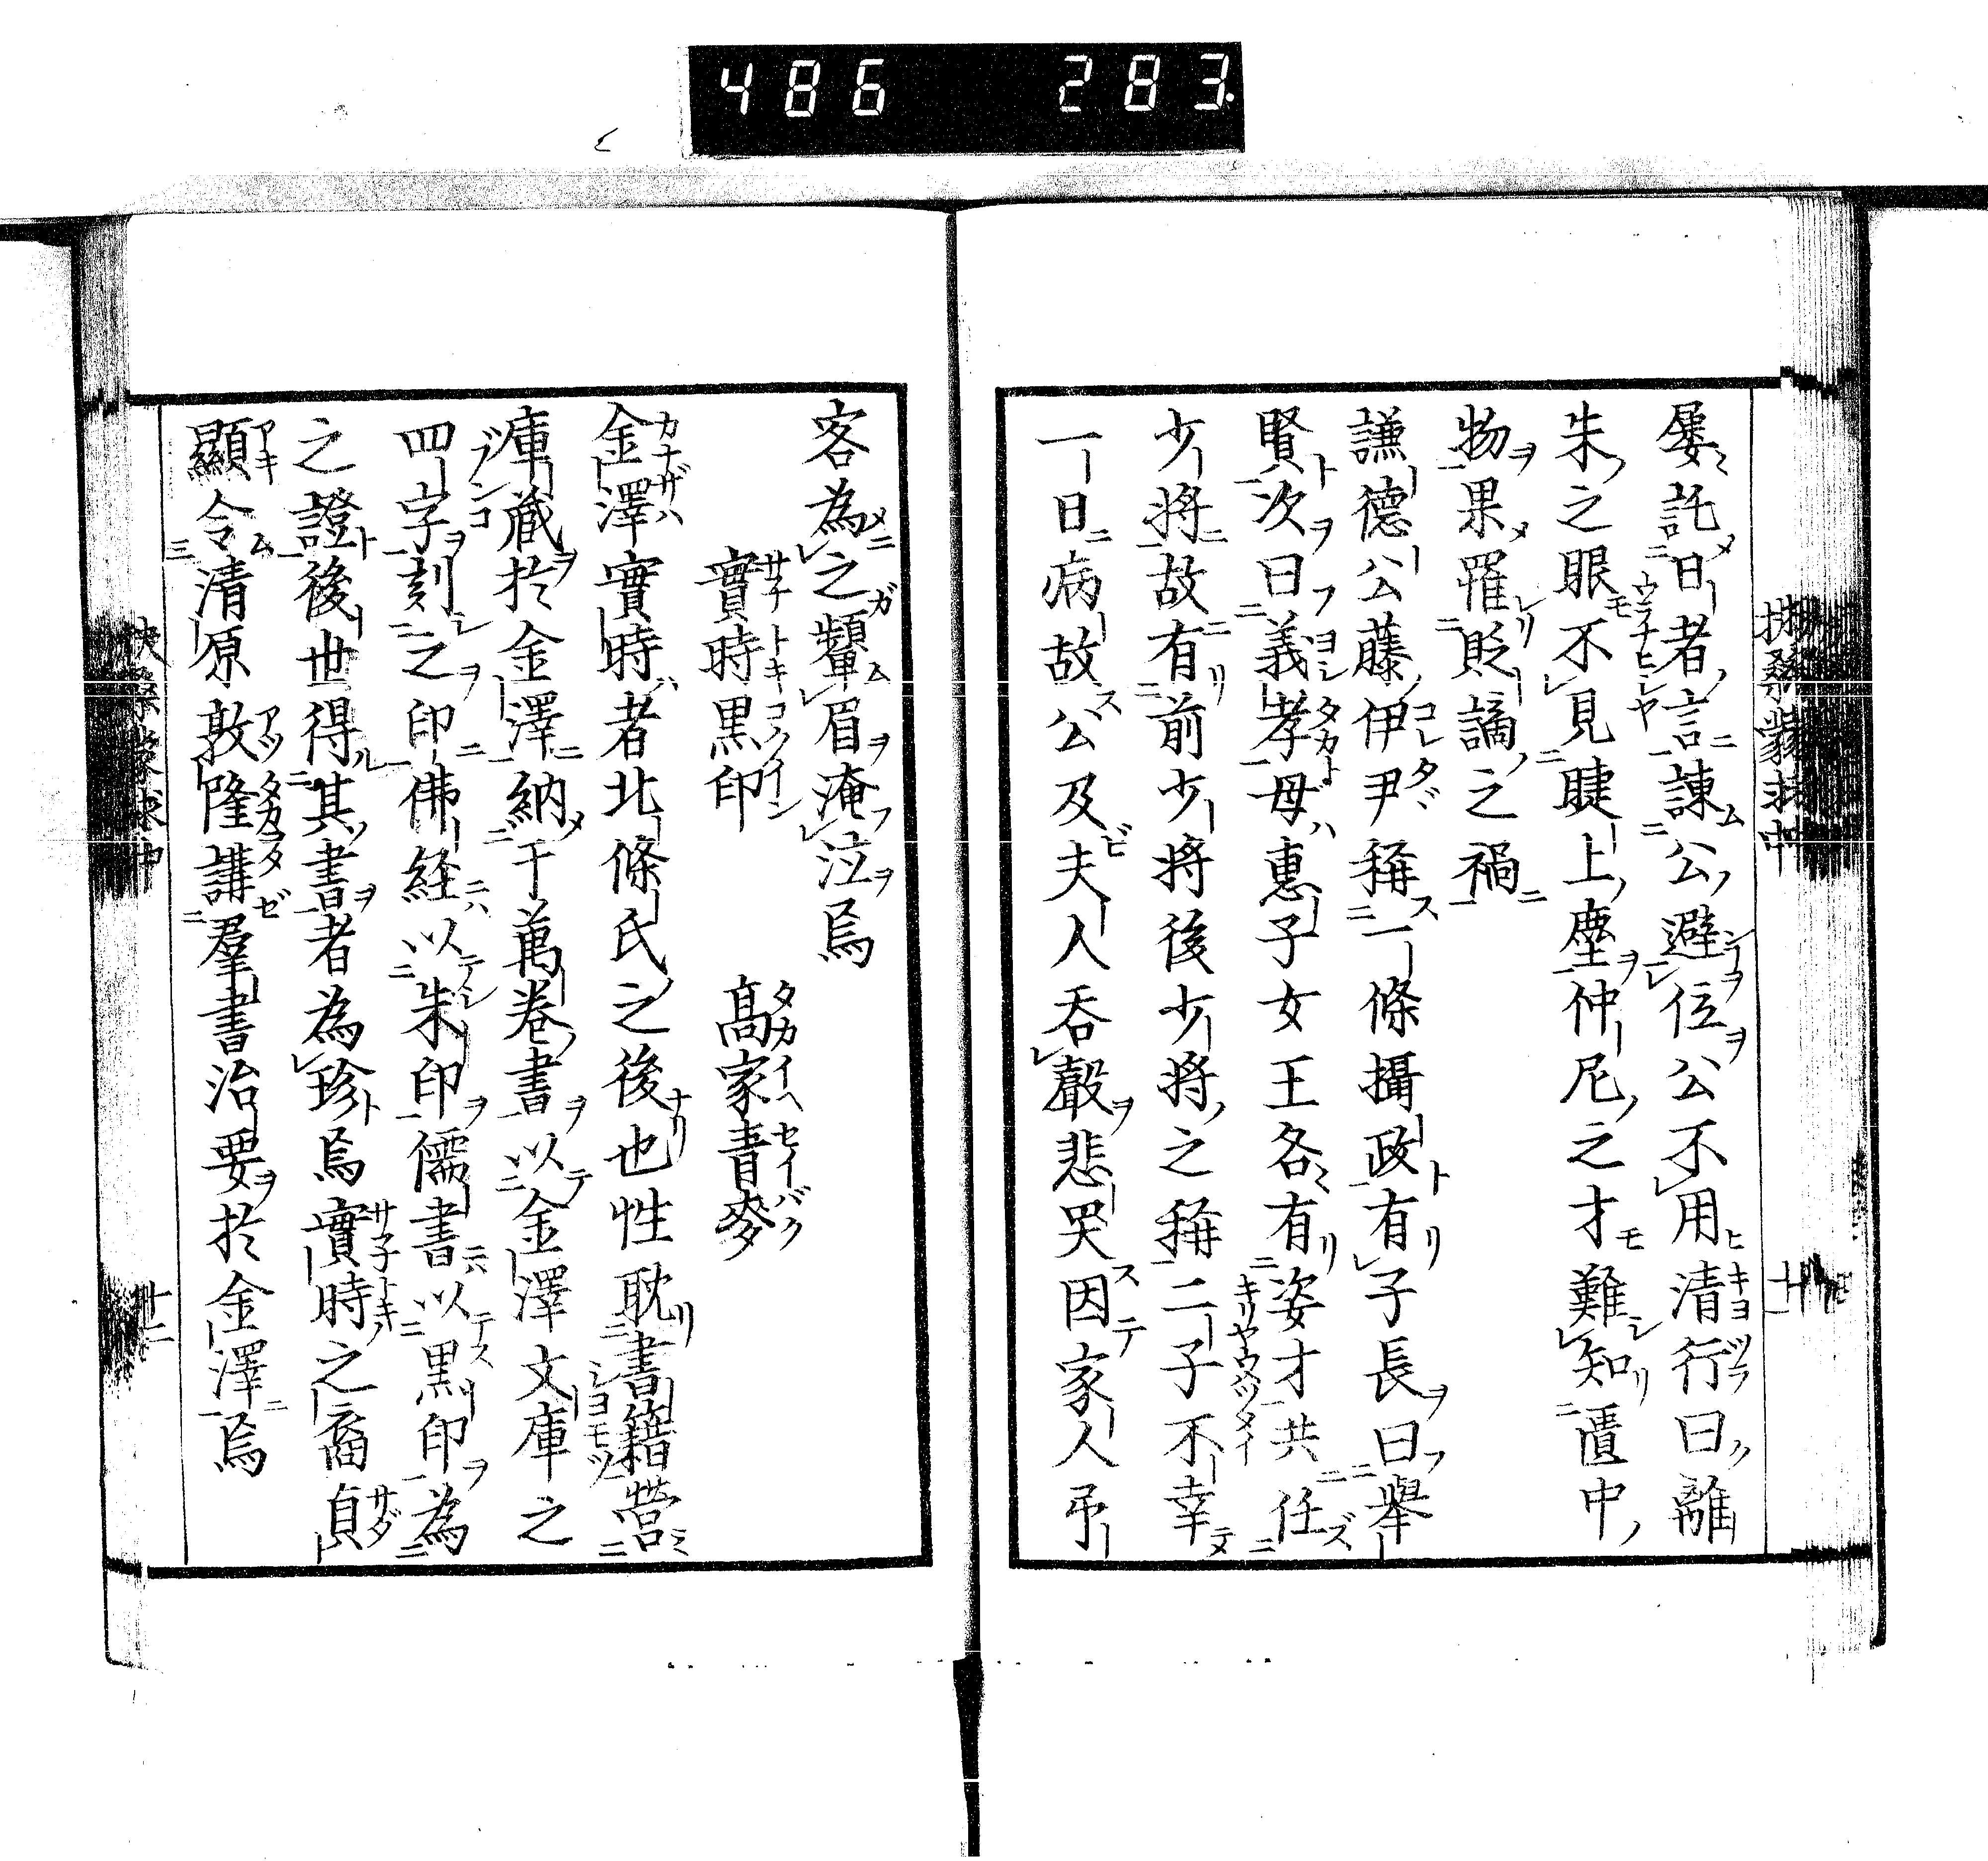 486 283.
屢託日者言諫公避位公不用清行曰離
朱之眼不見睫上塵仲尼之才難知匱中
物果罹貶謫之禍
謙德公藤伊尹稱一條攝政有子長曰擧
賢次曰義孝母惠子女王各有姿才共任
少將故有前少將後少將之稱二子不幸
一日病故公及夫人吞聲悲哭因家人弔
客為之顰眉淹泣焉
實時黒印 高家青麥
金澤實時者北條氏之後也性耽書籍營
庫藏於金澤納十萬卷書以金澤文庫之
四字刻之印佛経以朱印儒書以黒印為
之證後世得其書者為珍焉實時之裔貞
顯令清原敦隆講羣書治要於金澤焉
扶桑蒙求中 廿二